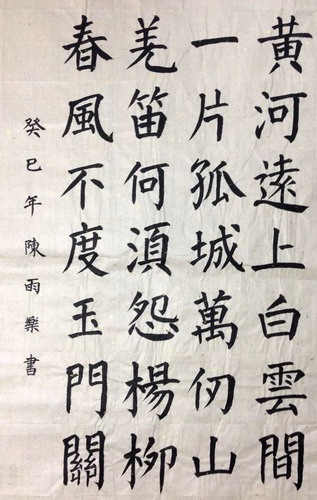 黄河遠上白雲間
一片孤城萬仞山
羌笛何須怨楊柳
春風不度玉門關
癸巳年陳雨樂書